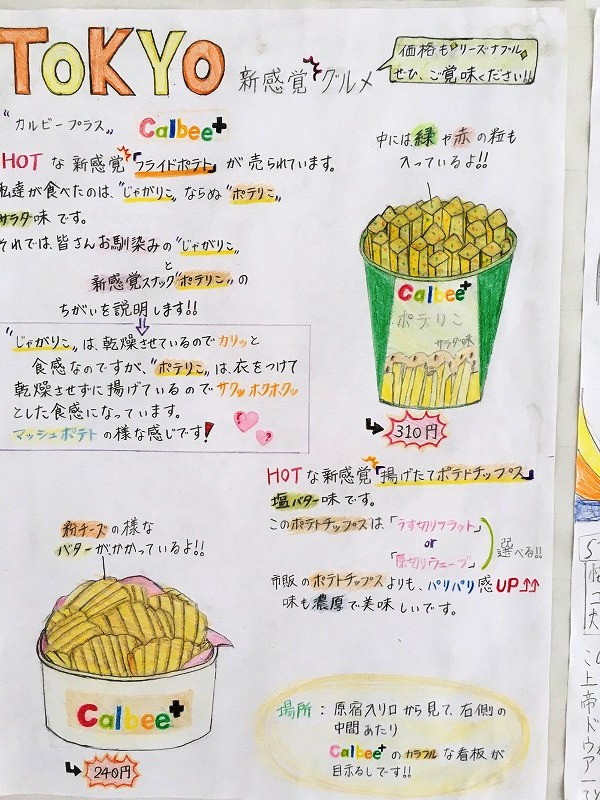 TOKYO 新感覚グルメ
価格もリーズナブル
ぜひ、ご賞味ください!!
"カルビープラス" Calbee+
HOTな新感覚「フライドポテト」が売られています。
私達が食べたのは、"じゃがりこ"ならぬ"ポテりこ"
サラダ味です。
それでは、皆さんお馴染みの"じゃがりこ"
と
新感覚スナック"ポテりこ"の
ちがいを説明します!!
"じゃがりこ"は、乾燥させているのでカリッと
食感なのですが、"ポテりこ"は、衣をつけて
乾燥させずに揚げているのでサクッホクホクッ
とした食感になっています。
マッシュポテトの様な感じです!
中には緑や赤の粒も
入っているよ!!
Calbee+
ポテりこ
サラダ味
310円
HOTな新感覚「揚げたてポテトチップス」
塩バター味です。
このポテトチップスは「うす切りフラット」
or
「厚切りウェーブ」
選べる!!
市販のポテトチップスよりも、パリパリ感UP↑↑
味も濃厚で美味しいです。
粉チーズの様な
バターがかかっているよ!!
Calbee+
240円
場所：原宿入り口から見て、右側の
中間あたり
Calbee+のカラフルな看板が
目印です!!